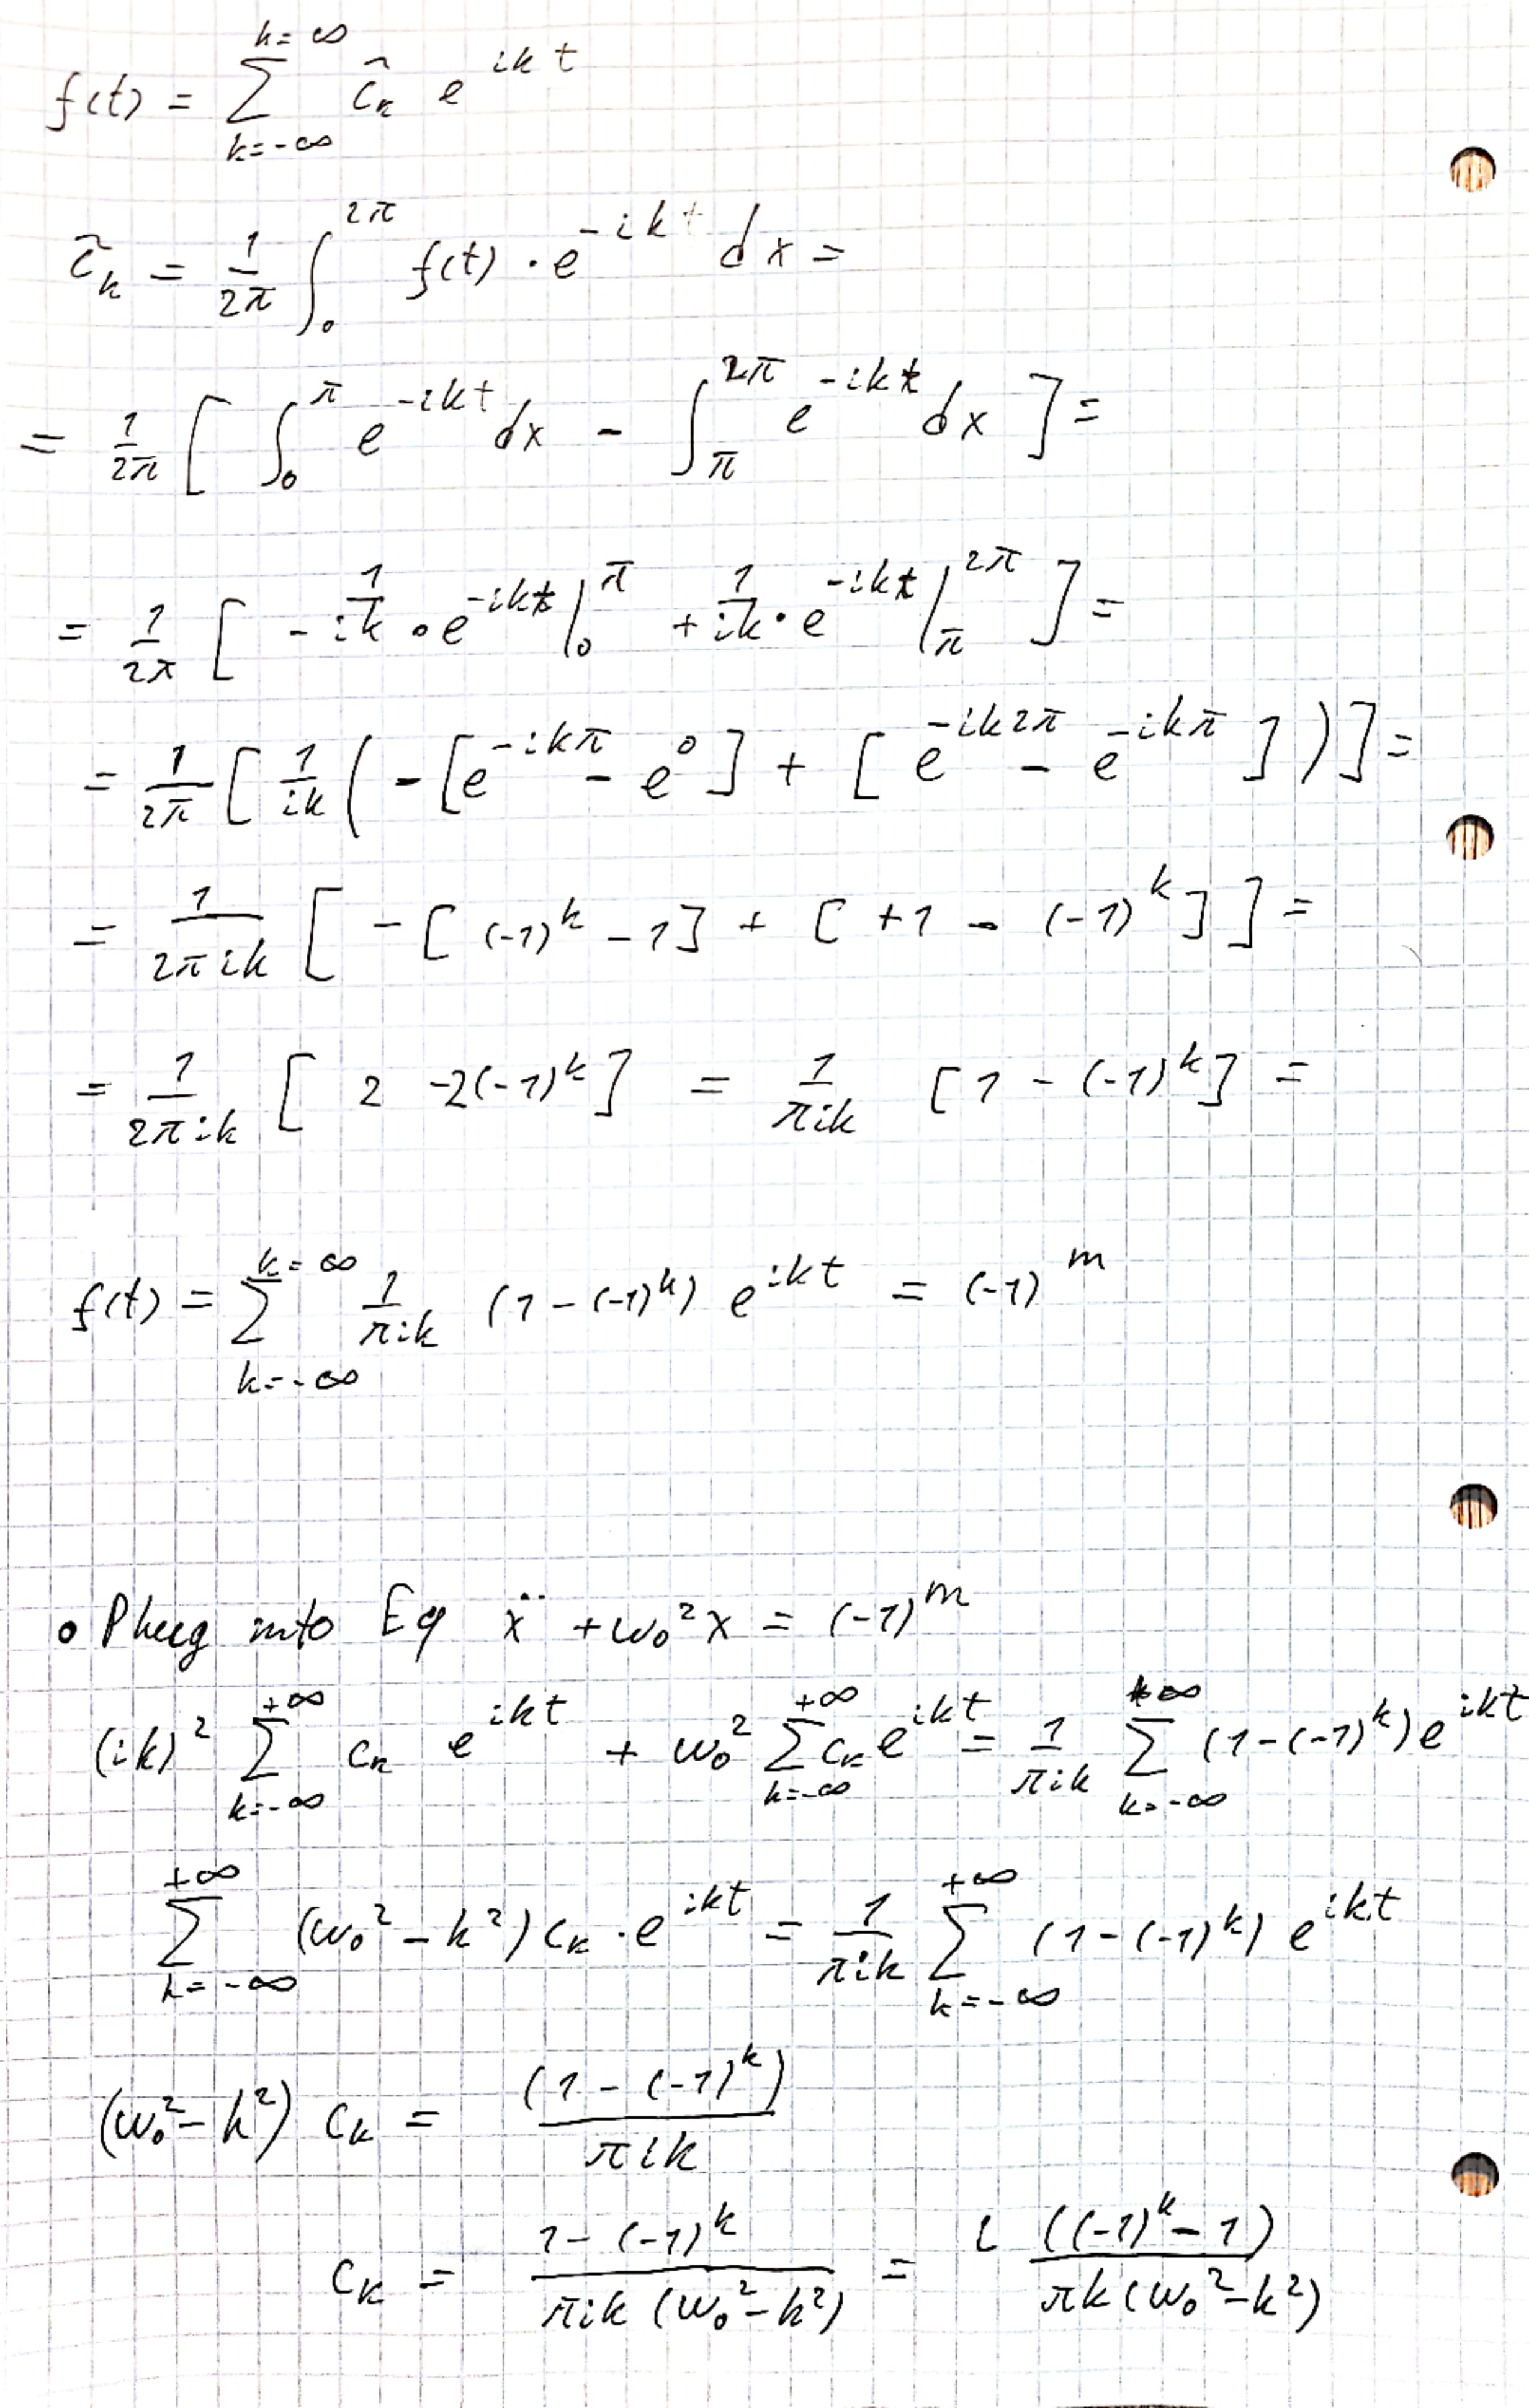 f(t) = \sum_{k=-∞}^{k=∞} \hat{c}_k e^{ikt}
\tilde{c}_k = \frac{1}{2π} \int_0^{2π} f(t) · e^{-ikt} dx =
= \frac{1}{2π} [ \int_0^{π} e^{-ikt} dx - \int_π^{2π} e^{-ikt} dx ] =
= \frac{1}{2π} [ -\frac{1}{ik} · e^{-ikt} |_0^{π} + \frac{1}{ik} · e^{-ikt} |_π^{2π} ] =
= \frac{1}{2π} [ \frac{1}{ik} ( - [ e^{-ikπ} - e^0 ] + [ e^{-ik2π} - e^{-ikπ} ] ) ] =
= \frac{1}{2πik} [ - [ (-1)^k - 1 ] + [ +1 - (-1)^k ] ] =
= \frac{1}{2πik} [ 2 -2(-1)^k ] = \frac{1}{πik} [ 1 - (-1)^k ] =
f(t) = \sum_{k=-∞}^{k=∞} \frac{1}{πik} (1 - (-1)^k) e^{ikt} = (-1)^m
• Pluug into Eq \ddot{x} + ω_0^2 x = (-1)^m
(ik)^2 \sum_{k=-∞}^{+∞} c_k e^{ikt} + ω_0^2 \sum_{k=-∞}^{+∞} c_k e^{ikt} = \frac{1}{πik} \sum_{k=-∞}^{+∞} (1-(-1)^k) e^{ikt}
\sum_{k=-∞}^{+∞} (ω_0^2 - k^2) c_k · e^{ikt} = \frac{1}{πik} \sum_{k=-∞}^{+∞} (1-(-1)^k) e^{ikt}
(ω_0^2 - k^2) c_k = \frac{(1 - (-1)^k)}{πik}
c_k = \frac{1 - (-1)^k}{πik (ω_0^2 - k^2)} = i \frac{((-1)^k - 1)}{πk (ω_0^2 - k^2)}